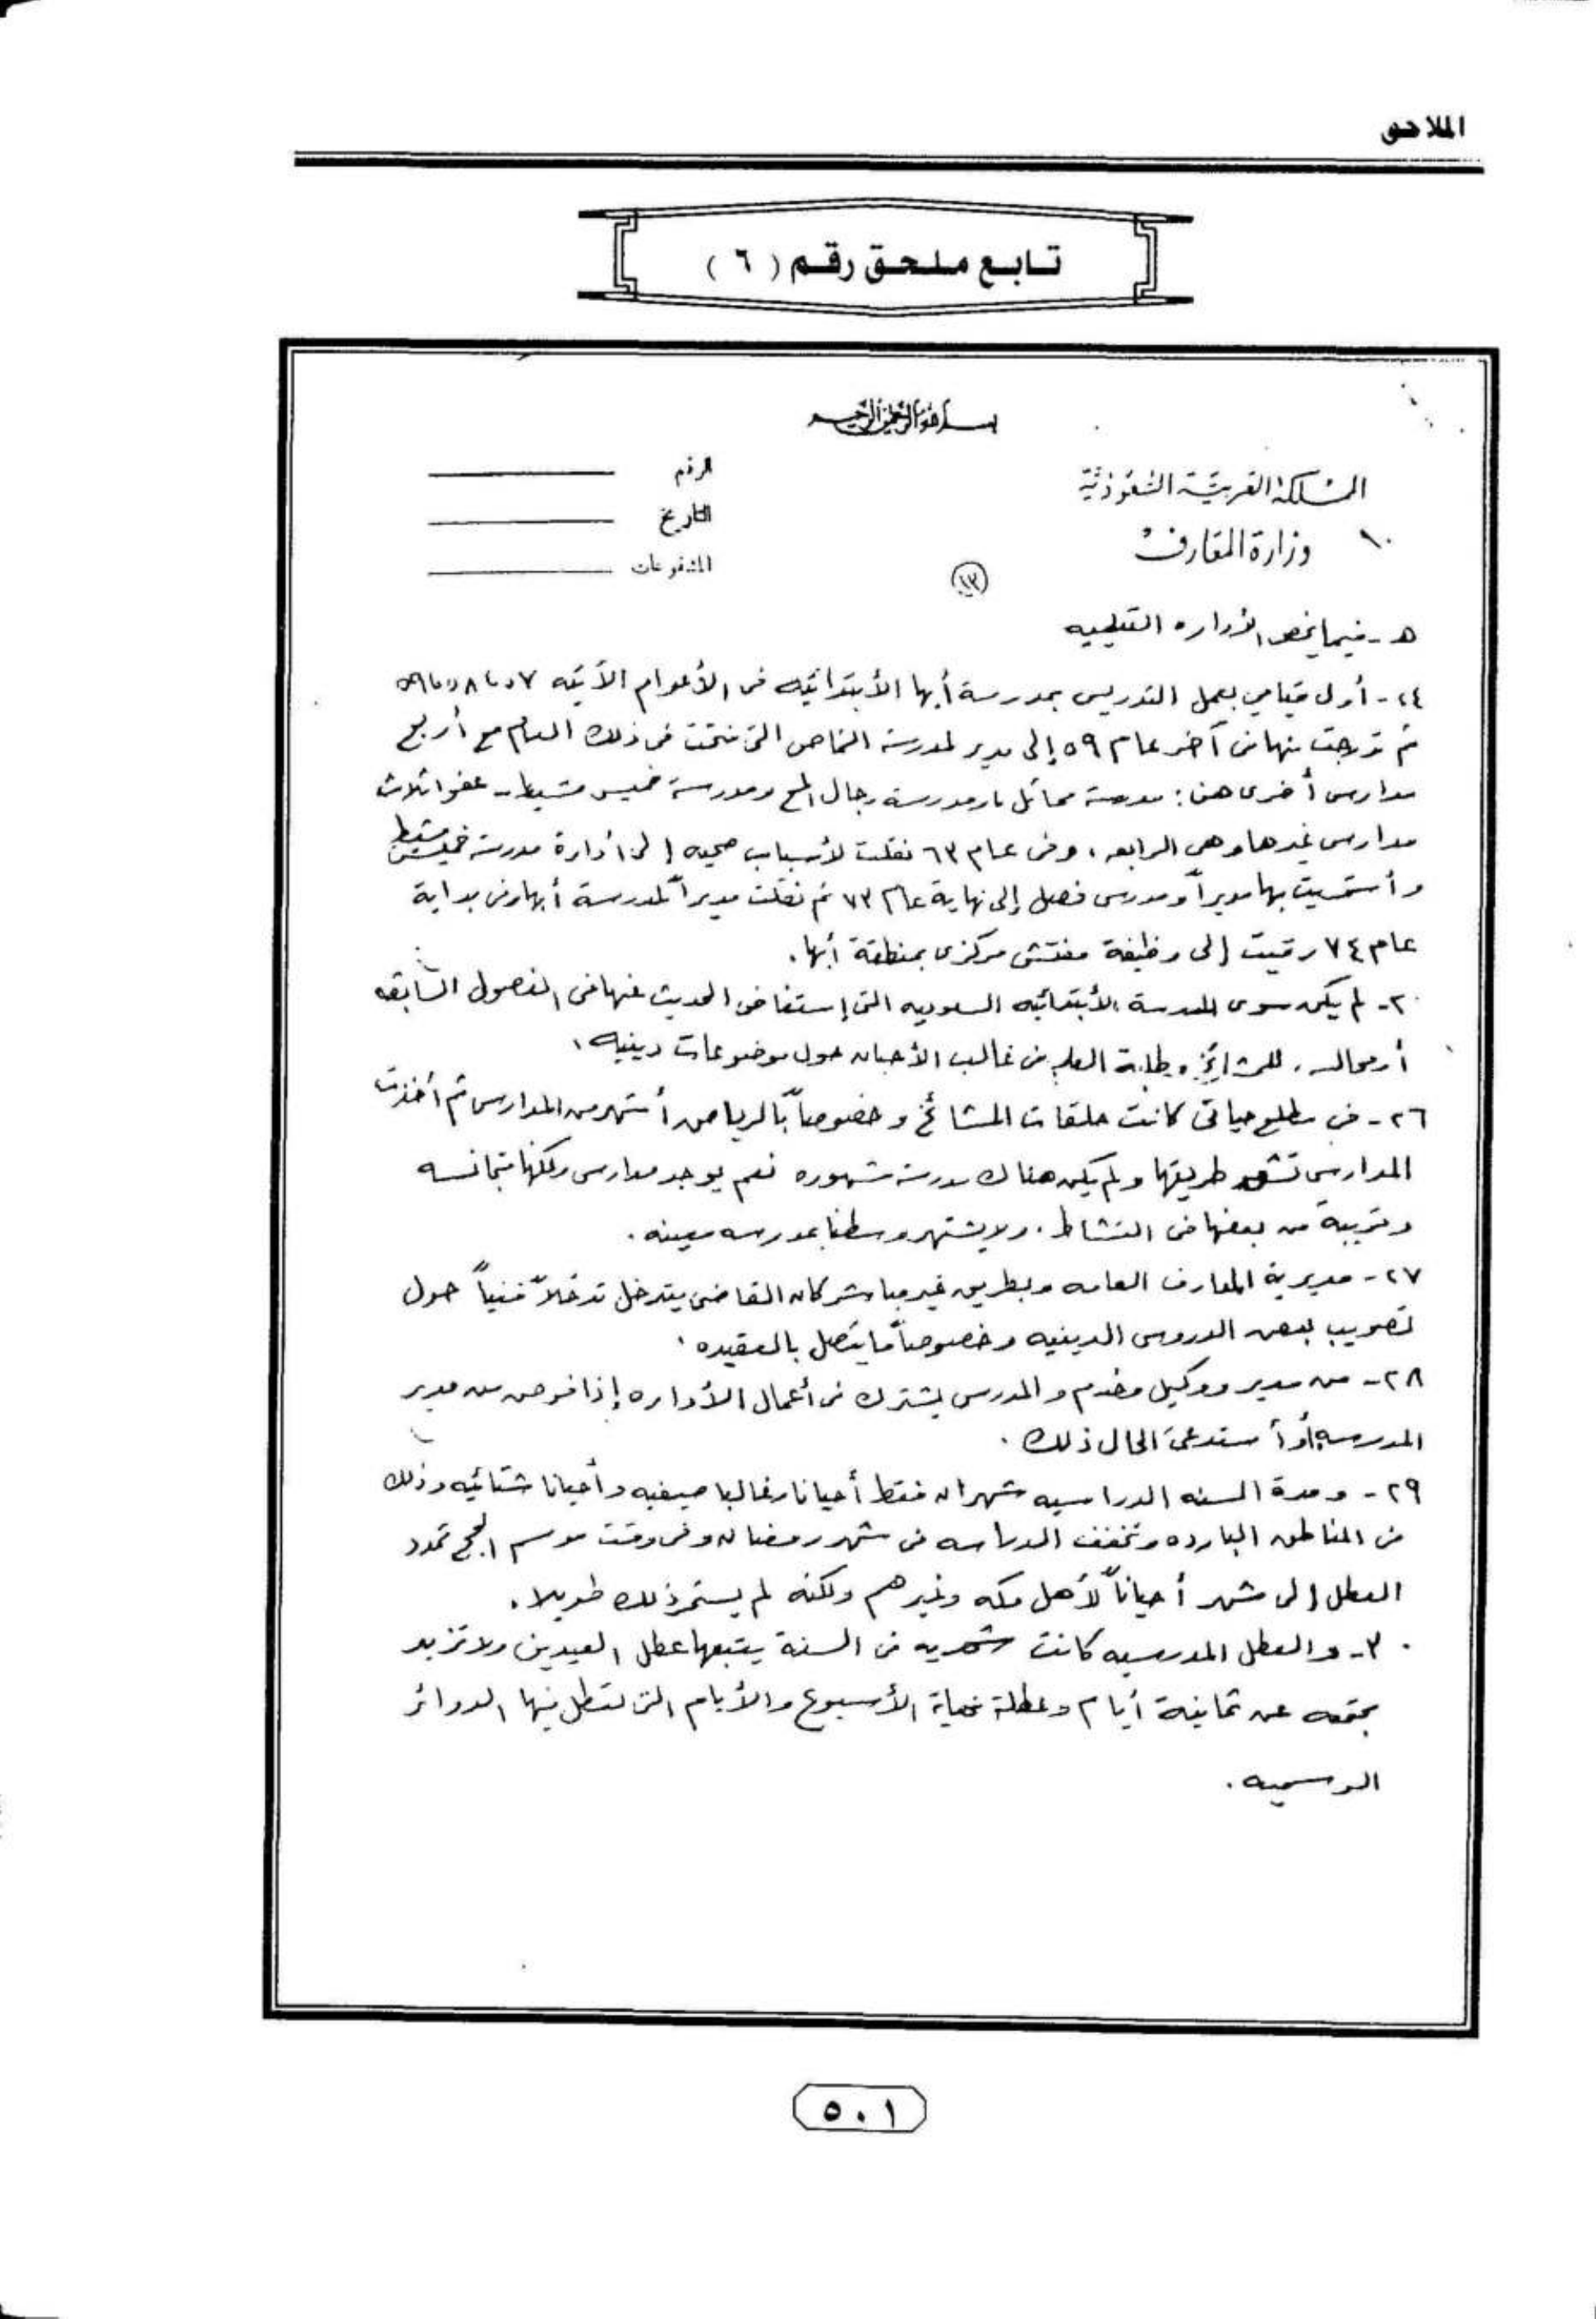 الملاحق
تابع ملحق رقم ( ٦ )
بسم الله الرحمن الرحيم
المملكة العربية السعودية
وزارة المعارف
الرقم
التاريخ
المشفوعات
١٣
هـ - فيما يخص الإداره التعليميه
٢٤- أول قيامي بعمل التدريس بمدرسة أبها الأبتدائيه فى الأعوام الآتيه
ثم تدرجت منها فى آخر عام ٥٩ إلى مدير لمدرسة النماص التى فتحت فى ذلك العام مع أربع
مدارس أخرى هن : مدرسة محائل ومدرسة رجال المع ومدرسة خميس مشيط - ثلاث
مدارس غيرها وهى الرابعه ، وفى عام ٦٣ نقلت لأسباب صحيه إلى أدارة مدرسة خميس مشيط
وأستمريت بها مديراً ومدرس فصل إلى نهاية عام ٧٣ ثم نقلت مديراً لمدرسة أبها وفى بداية
عام ٧٤ رقيت إلى وظيفة مفتش مركزى بمنطقة أبها .
لم يكن سوى المدرسة الأبتدائيه السعوديه التى إستفاض الحديث عنها فى الفصول السابقه
أو مجالس للمشائخ وطلبة العلم فى غالب الأحيان حول موضوعات دينيه ،
٢٦- فى مطلع حياتى كانت حلقات المشائخ وخصوصاً بالرياض أشهر من المدارس ثم أخذت
المدارس تشق طريقها ولم يكن هناك مدرسة مشهوره نعم يوجد مدارس ولكنها متجانسه
وقريبة من بعضها فى النشاط . ولا يشتهر وسطنا بمدرسه معينه .
٢٧- مديرية المعارف العامه وبطريق غير مباشر كان القاضى يتدخل تدخلاً فنياً حول
تصويب بعض الدروس الدينيه وخصوصاً ما يتصل بالعقيده .
٢٨- من مدير ووكيل وخدم والمدرس يشترك فى أعمال الأداره إذا فوض من مدير
المدرسه أو أستدعى الحال ذلك .
٢٩- ومدة السنه الدراسيه شهران فقط أحيانا وغالبا صيفيه وأحيانا شتائيه وذلك
فى المناطق البارده وتخفف الدراسه فى شهر رمضان وفى وقت موسم الحج تمدد
العطل إلى شهر أحياناً لأهل مكه وغيرهم ولكنه لم يستمر ذلك طويلا .
٣٠- والعطل المدرسيه كانت شهريه فى السنة يتبعها عطل العيدين ولا تزيد
عن ثمانية أيام وعطلة نهاية الأسبوع والأيام التى تتعطل فيها الدوائر
الرسميه .
٥٠١